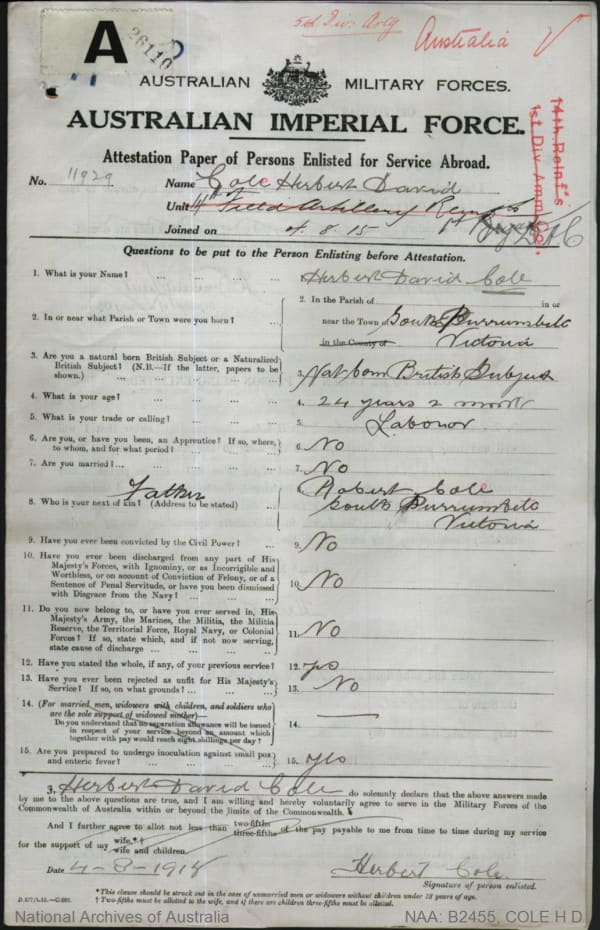 A
26110
5th Div: Arty
Australia
AUSTRALIAN MILITARY FORCES.
AUSTRALIAN IMPERIAL FORCE.
Attestation Paper of Persons Enlisted for Service Abroad.
14th Reinf's
1st Div. Amm. Col.
No. 11929 Name Cole Herbert David
Unit 4th Field Artillery
Joined on 4.8.15
Questions to be put to the Person Enlisting before Attestation.
1. What is your Name? ... ... ... ... Herbert David Cole
2. In or near what Parish or Town were you born? ... 2. In the Parish of in or
near the Town of South Purrumbete
in the County of Victoria
3. Are you a natural born British Subject or a Naturalized
British Subject? (N.B.—If the latter, papers to be
shown.) ... ... ... ... 3. Nat born British Subject
4. What is your age? ... ... ... ... 4. 24 years 2 month
5. What is your trade or calling? ... ... ... 5. Labonor
6. Are you, or have you been, an Apprentice? If so, where,
to whom, and for what period? ... ... ... 6. No
7. Are you married?... ... ... ... ... 7. No
Father
8. Who is your next of kin? (Address to be stated) ... 8. Robert Cole
South Purrumbete
Victoria
9. Have you ever been convicted by the Civil Power? ... 9. No
10. Have you ever been discharged from any part of His
Majesty's Forces, with Ignominy, or as Incorrigible and
Worthless, or on account of Conviction of Felony, or of a
Sentence of Penal Servitude, or have you been dismissed
with Disgrace from the Navy? ... ... ... 10. No
11. Do you now belong to, or have you ever served in, His
Majesty's Army, the Marines, the Militia, the Militia
Reserve, the Territorial Force, Royal Navy, or Colonial
Forces? If so, state which, and if not now serving,
state cause of discharge ... ... ... ... 11. No
12. Have you stated the whole, if any, of your previous service? 12. yes
13. Have you ever been rejected as unfit for His Majesty's
Service? If so, on what grounds? ... ... ... 13. No
14. (For married men, widowers with children, and soldiers who
are the sole support of widowed mother)—
Do you understand that no separation allowance will be issued
in respect of your service beyond an amount which
together with pay would reach eight shillings per day? 14. —
15. Are you prepared to undergo inoculation against small pox
and enteric fever? ... ... ... ... 15. yes
I, Herbert David Cole do solemnly declare that the above answers made
by me to the above questions are true, and I am willing and hereby voluntarily agree to serve in the Military Forces of the
Commonwealth of Australia within or beyond the limits of the Commonwealth.
And I further agree to allot not less than two-fifths three-fifths of the pay payable to me from time to time during my service
for the support of my wife.*† wife and children.
Date 4-8-1915 Herbert Cole.
Signature of person enlisted.
* This clause should be struck out in the case of unmarried men or widowers without children under 18 years of age.
† Two-fifths must be allotted to the wife, and if there are children three-fifths must be allotted.
National Archives of Australia NAA: B2455, COLE H D